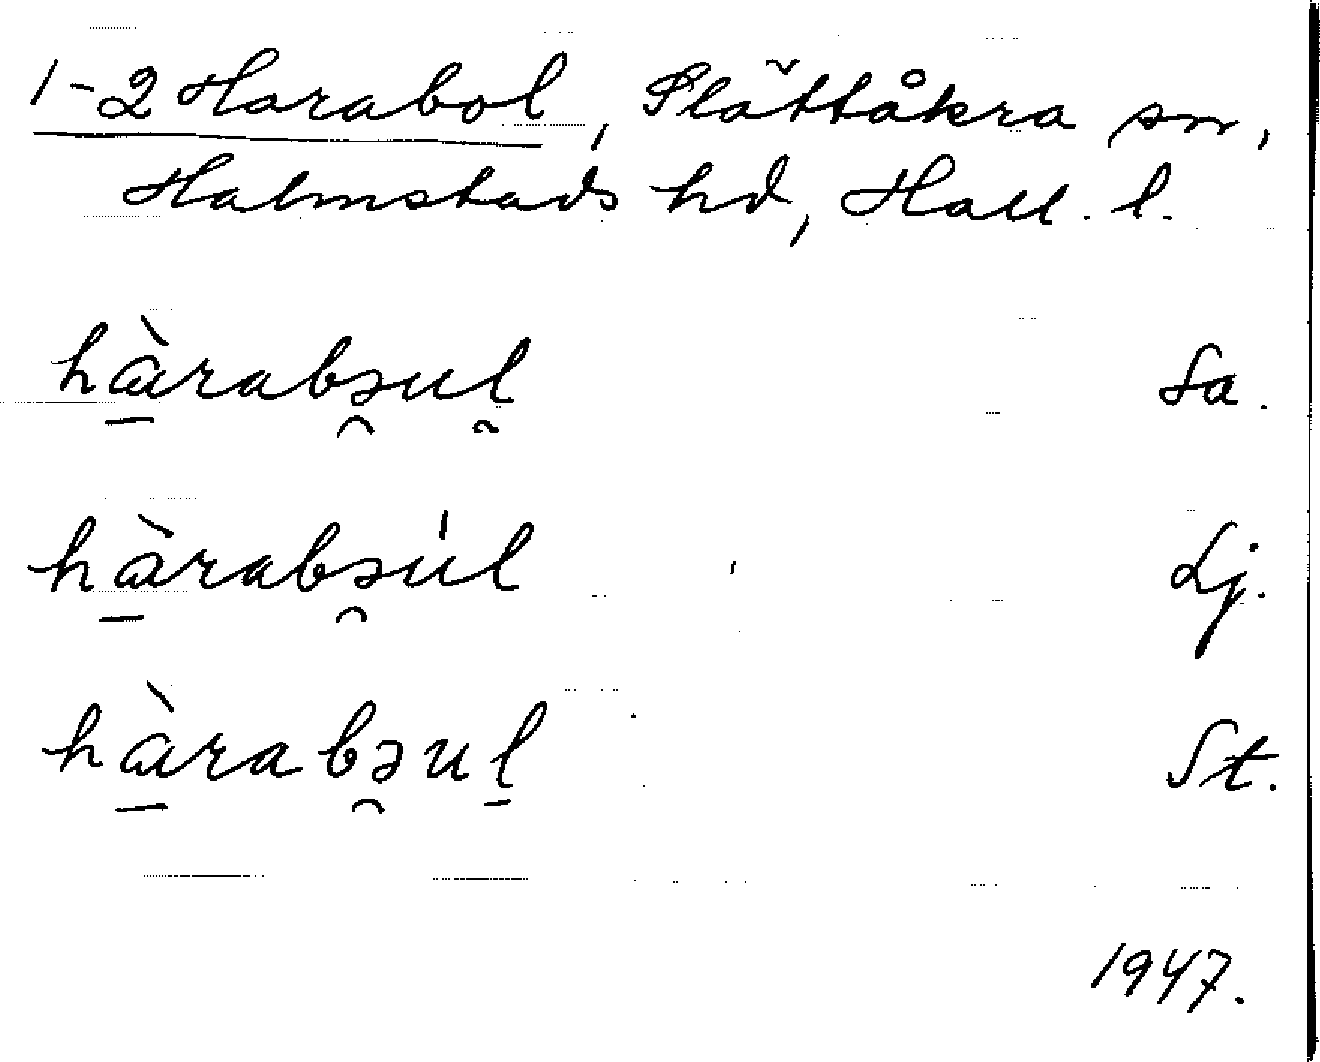 1-2 Harabol, Slättåkra sn,
Halmstads hd, Hall. l.
hà̱rabə̯ul̰ Sa.
hà̱rabə̯u̍l Lj.
hà̱rabə̯uḻ St.
1947.